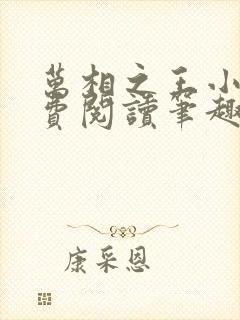 萬相之王小
費閱讀筆趣
康采恩